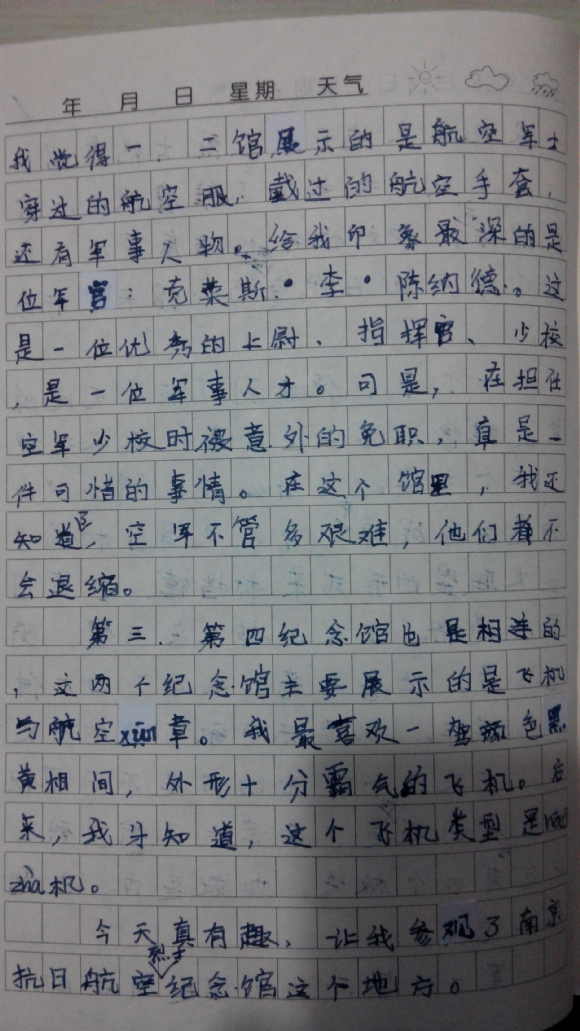 年 月 日 星期 天气
我觉得一、二馆展示的是航空军士
穿过的航空服,戴过的航空手套,
还有军事人物。给我印象最深的是
位军官:克莱斯·李·陈纳德。这
是一位优秀的上尉、指挥官、少校
,是一位军事人才。可是,在担任
空军少校时被意外的免职,真是一
件可惜的事情。在这个馆里,我还
知道,空军不管多艰难,他们都不
会退缩。
第三、第四纪念馆也是相连的
,这两个纪念馆主要展示的是飞机
与航空xūn章。我最喜欢一架 色黑
黄相间,外形十分霸气的飞机。后
来,我才知道,这个飞机类型是
zhà机。
今天真有趣,让我参观了南京
抗日航空烈士纪念馆这个地方。